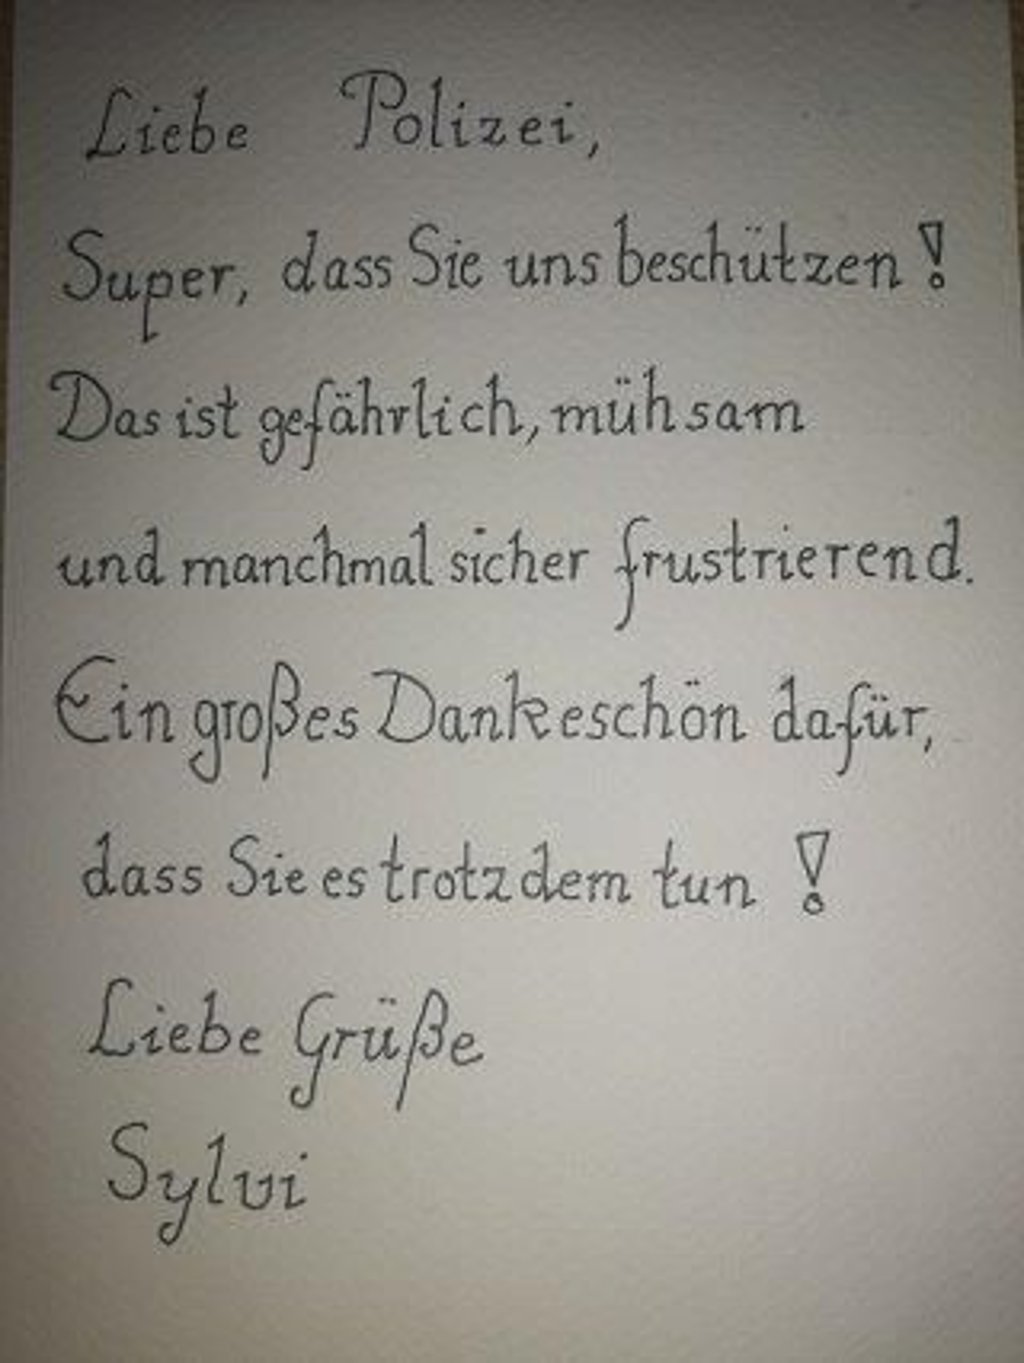 Liebe Polizei,
Super, dass Sie uns beschützen!
Das ist gefährlich, mühsam
und manchmal sicher frustrierend.
Ein großes Dankeschön dafür,
dass Sie es trotzdem tun!
Liebe Grüße
Sylvi